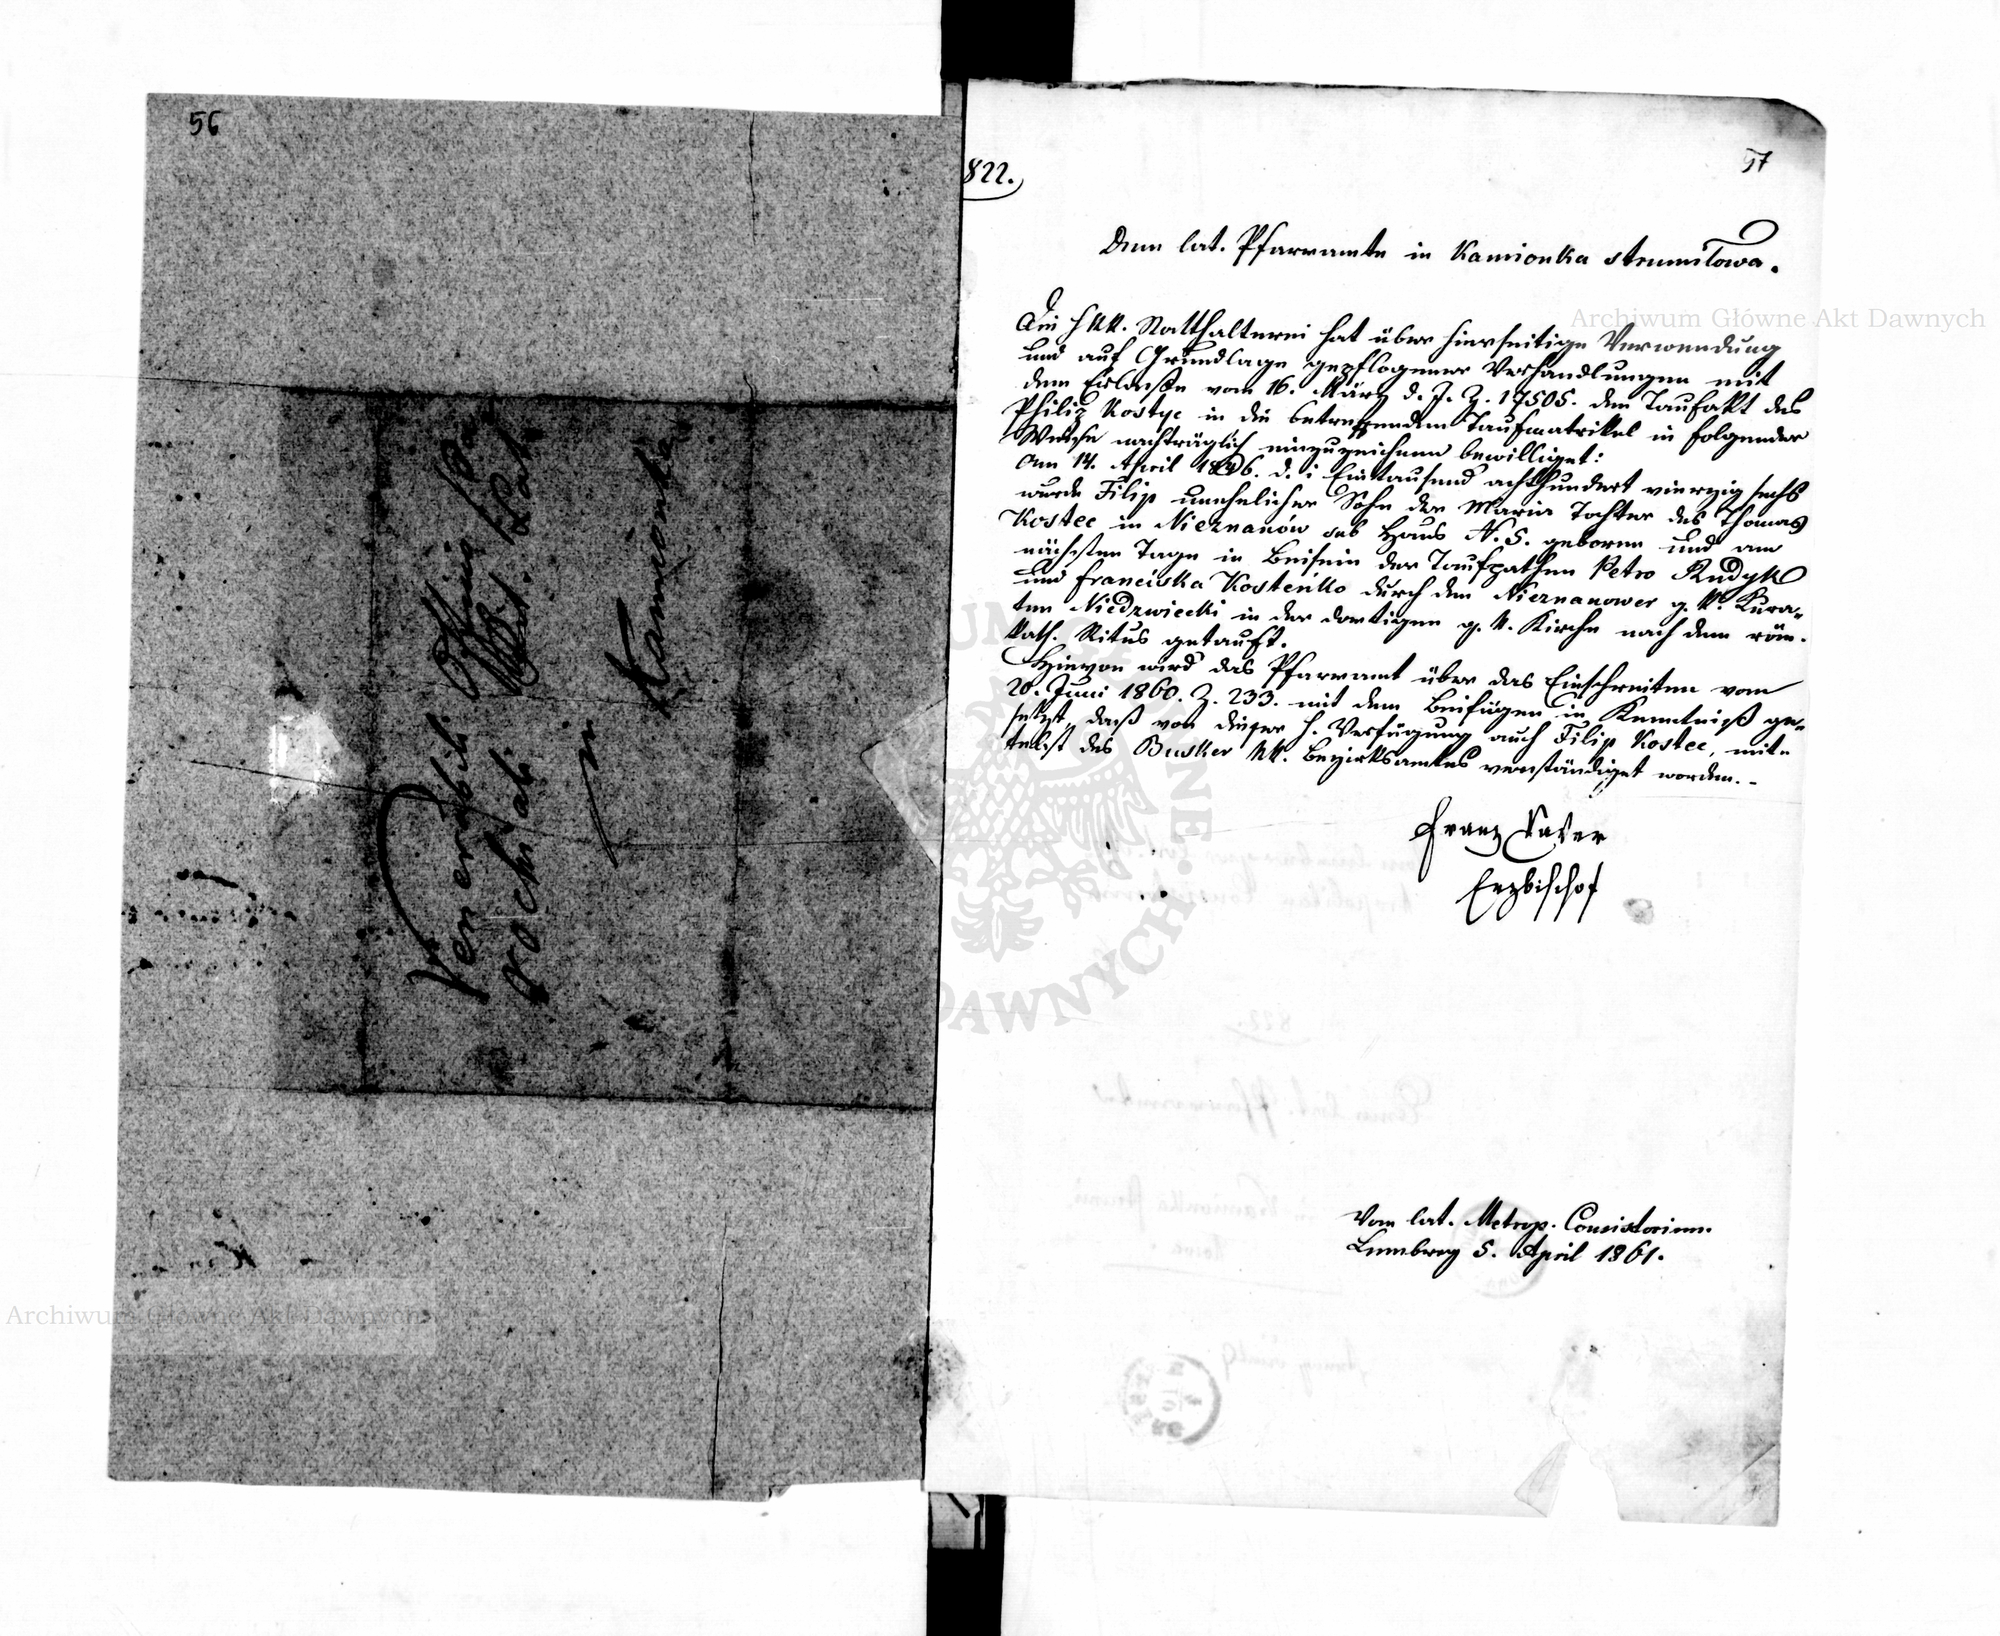 56
Venerabili Officio
rochiali Rit. Lat.
in
Kamionka
822.
57
Dem lat. Pfarramte in Kamionka strumiłowa.
Die h. k.k. Statthalterei hat über hierseitige Verwendung
und auf Grundlage gepflogener Verhandlungen mit
dem Erlaße vom 16. März d. J. Z. 17505. den Taufakt des
Philip Kostyc in die betreffenden Taufmatrikel in folgender
Weise nachträglich einzuzeichnen bewilliget:
Am 14. April 1846. d. i. Eintausend achthundert vierzig sechs
wurde Filip unehelicher Sohn der Maria Tochter des Thomas
Kostec in Nieznanów sub Haus N. 5. geboren und am
nächsten Tage in Beisein der Taufpathen Petro Rudyk
und Franciska Kosteńko durch den Nieznanower g. k. Kura-
ten Niedzwiecki in der dortigen g. k. Kirche nach dem röm.
kath. Ritus getauft.
Hievon wird das Pfarramt über das Einschreiten vom
20. Juni 1860. Z. 233. mit dem Beifügen in Kenntniß ge-
setzt, daß von dieser h. Verfügung auch Filip Kostec, mit-
telst des Busker kk. Bezirksamtes verständiget worden. -
Franz Xaver
Erzbischof
Vom lat. Metrop. Consistorium.
Lemberg 5. April 1861.
Archiwum Główne Akt Dawnych
Archiwum Główne Akt Dawnych